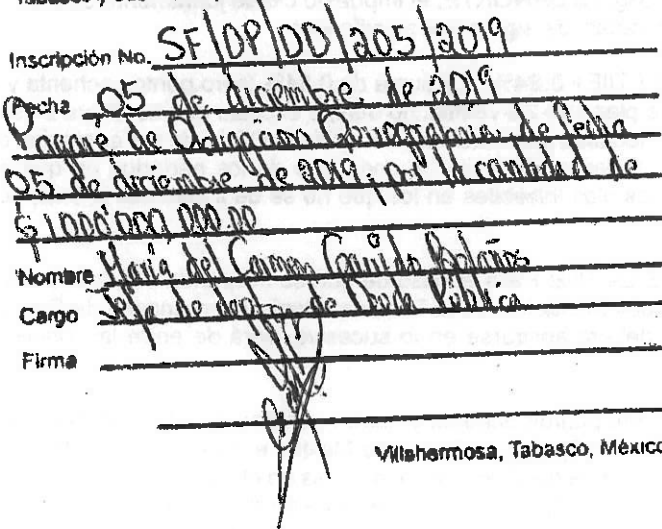 Inscripción No. SF/DP/DD/205/2019
Fecha 05 de diciembre de 2019
Pagaré de Obligacion Quirografaria de fecha
05 de diciembre de 2019, por la cantidad de
$1000'000,000.00
Nombre María del Carmen Bolaños
Cargo Jefa de depto. de Deuda Pública
Firma
Villahermosa, Tabasco, México